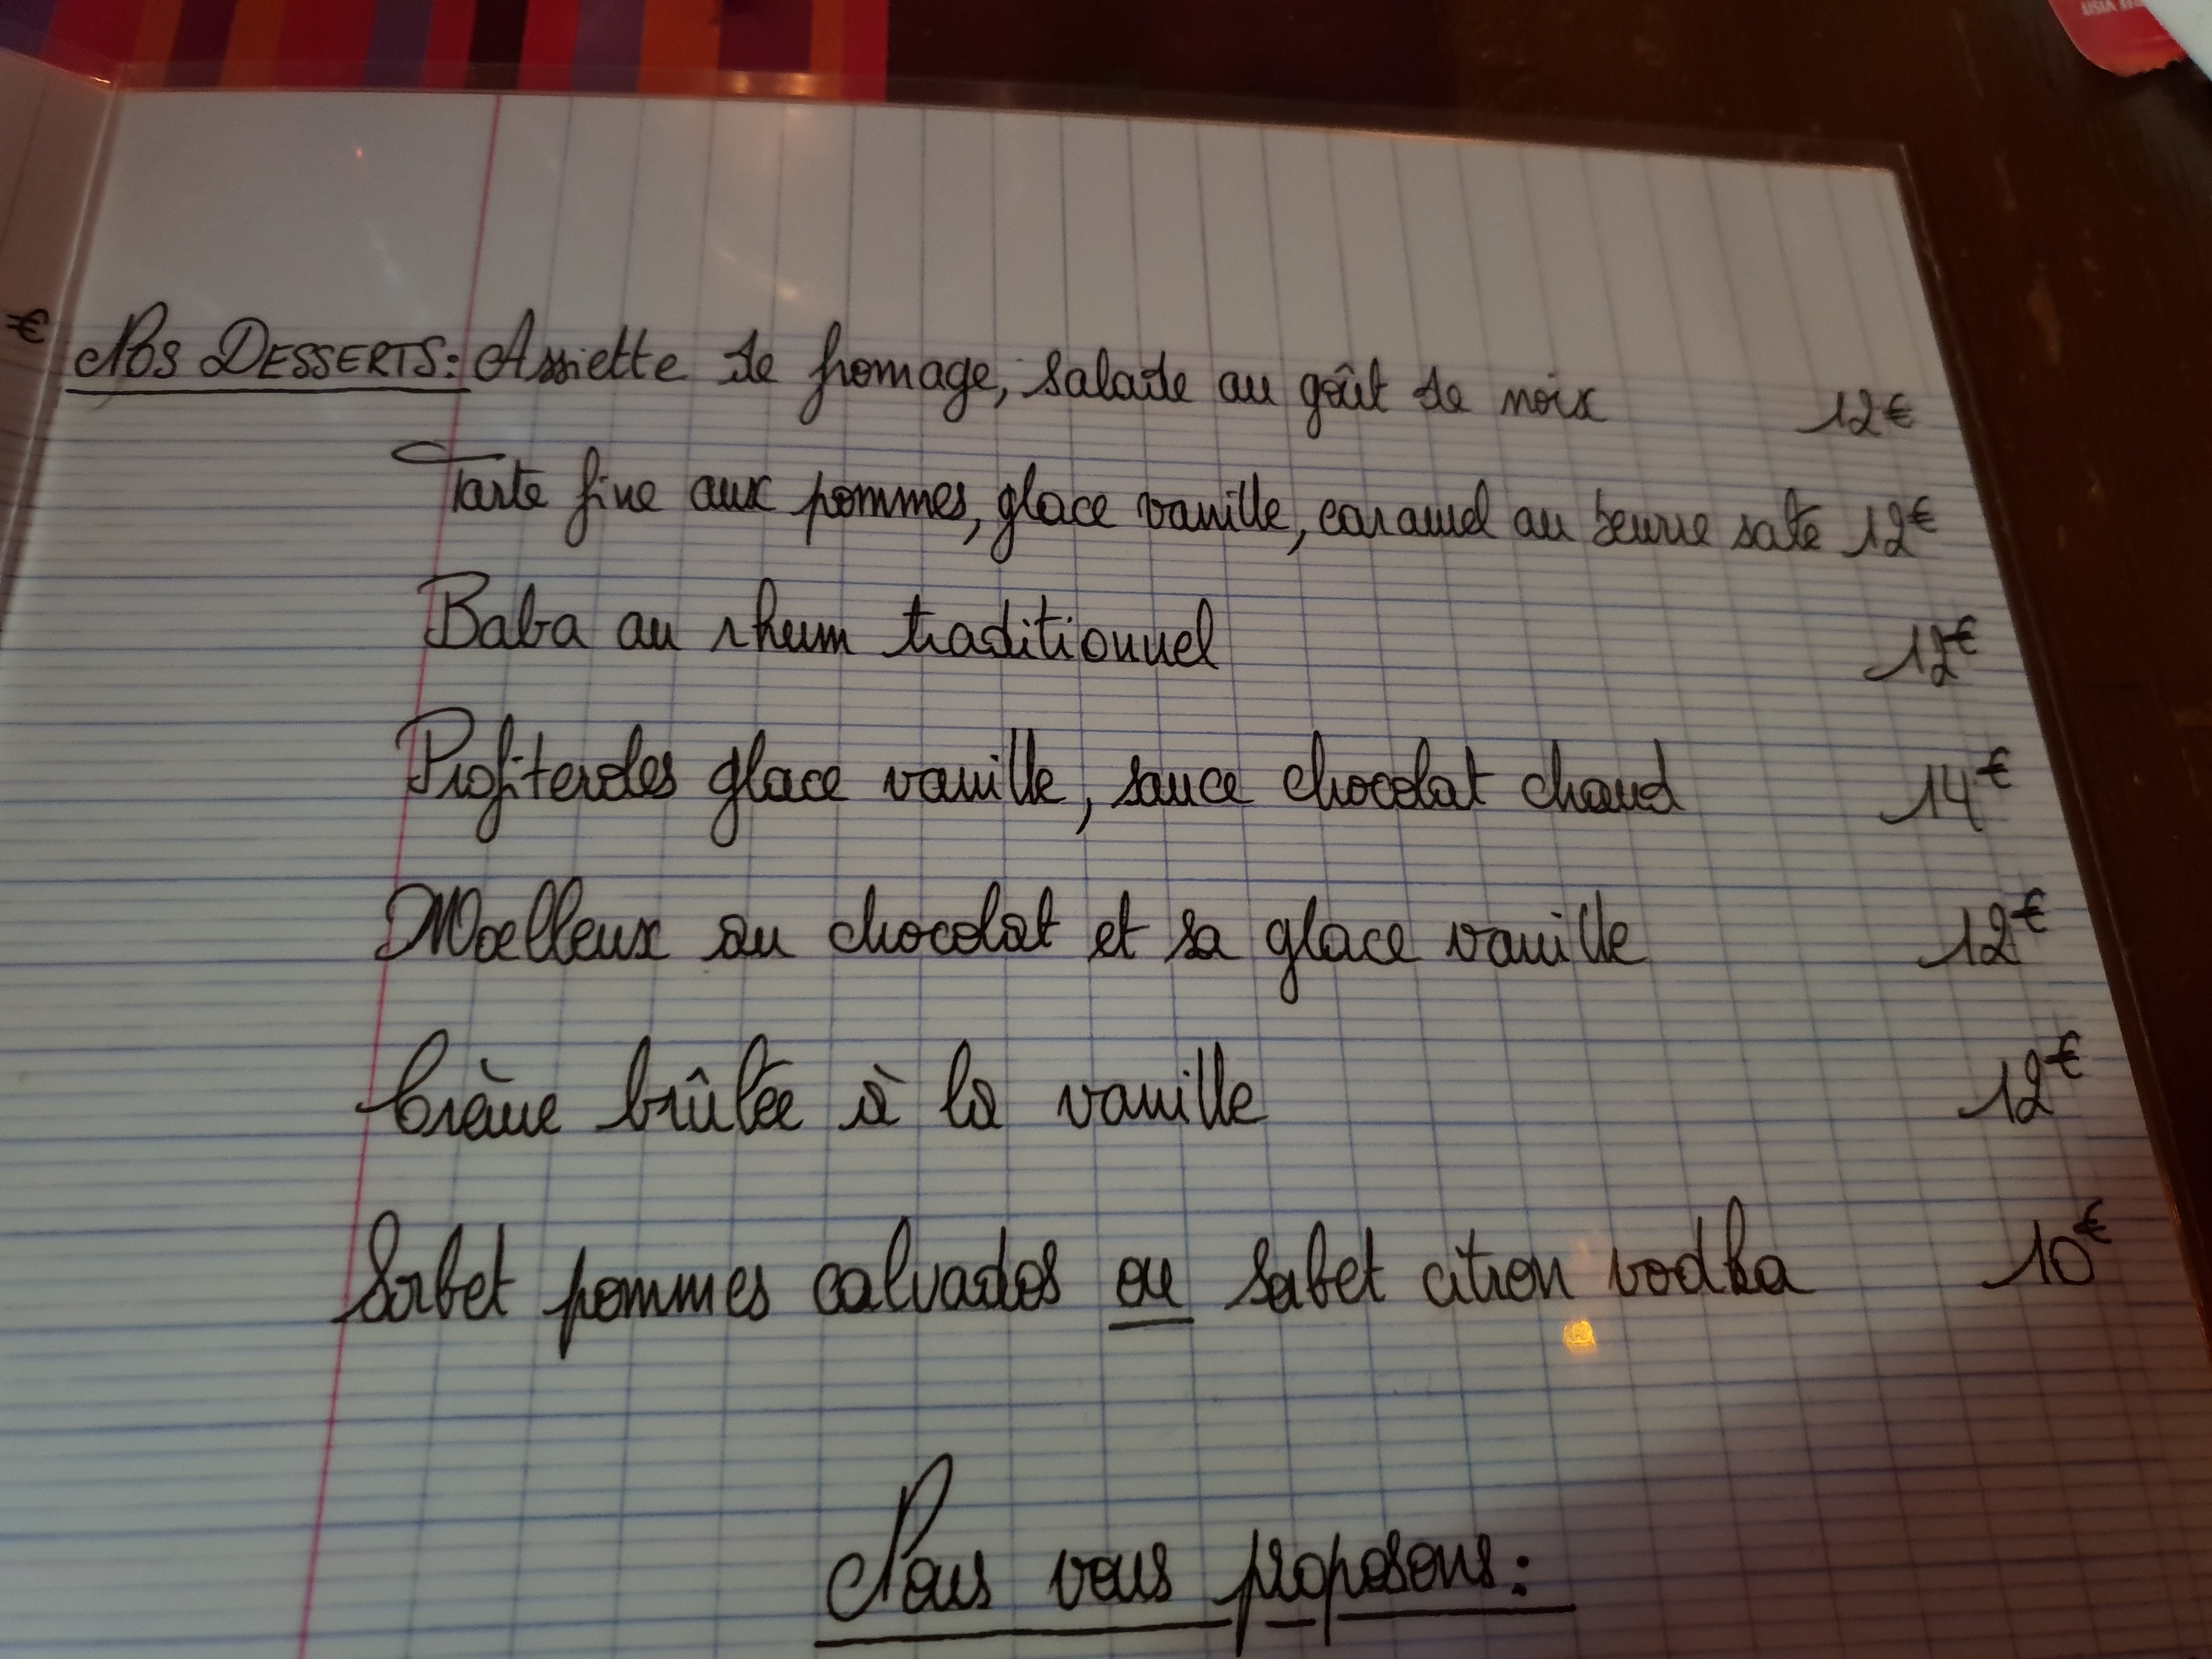 €
NOS DESSERTS: Assiette de fromage, salade au goût de noix 12€
Tarte fine aux pommes, glace vanille, caramel au beurre salé 12€
Baba au rhum traditionnel 12€
Profiteroles glace vanille, sauce chocolat chaud 14€
Moelleux au chocolat et sa glace vanille 12€
Crème brûlée à la vanille 12€
Sorbet pommes calvados ou sorbet citron vodka 10€
Nous vous proposons: